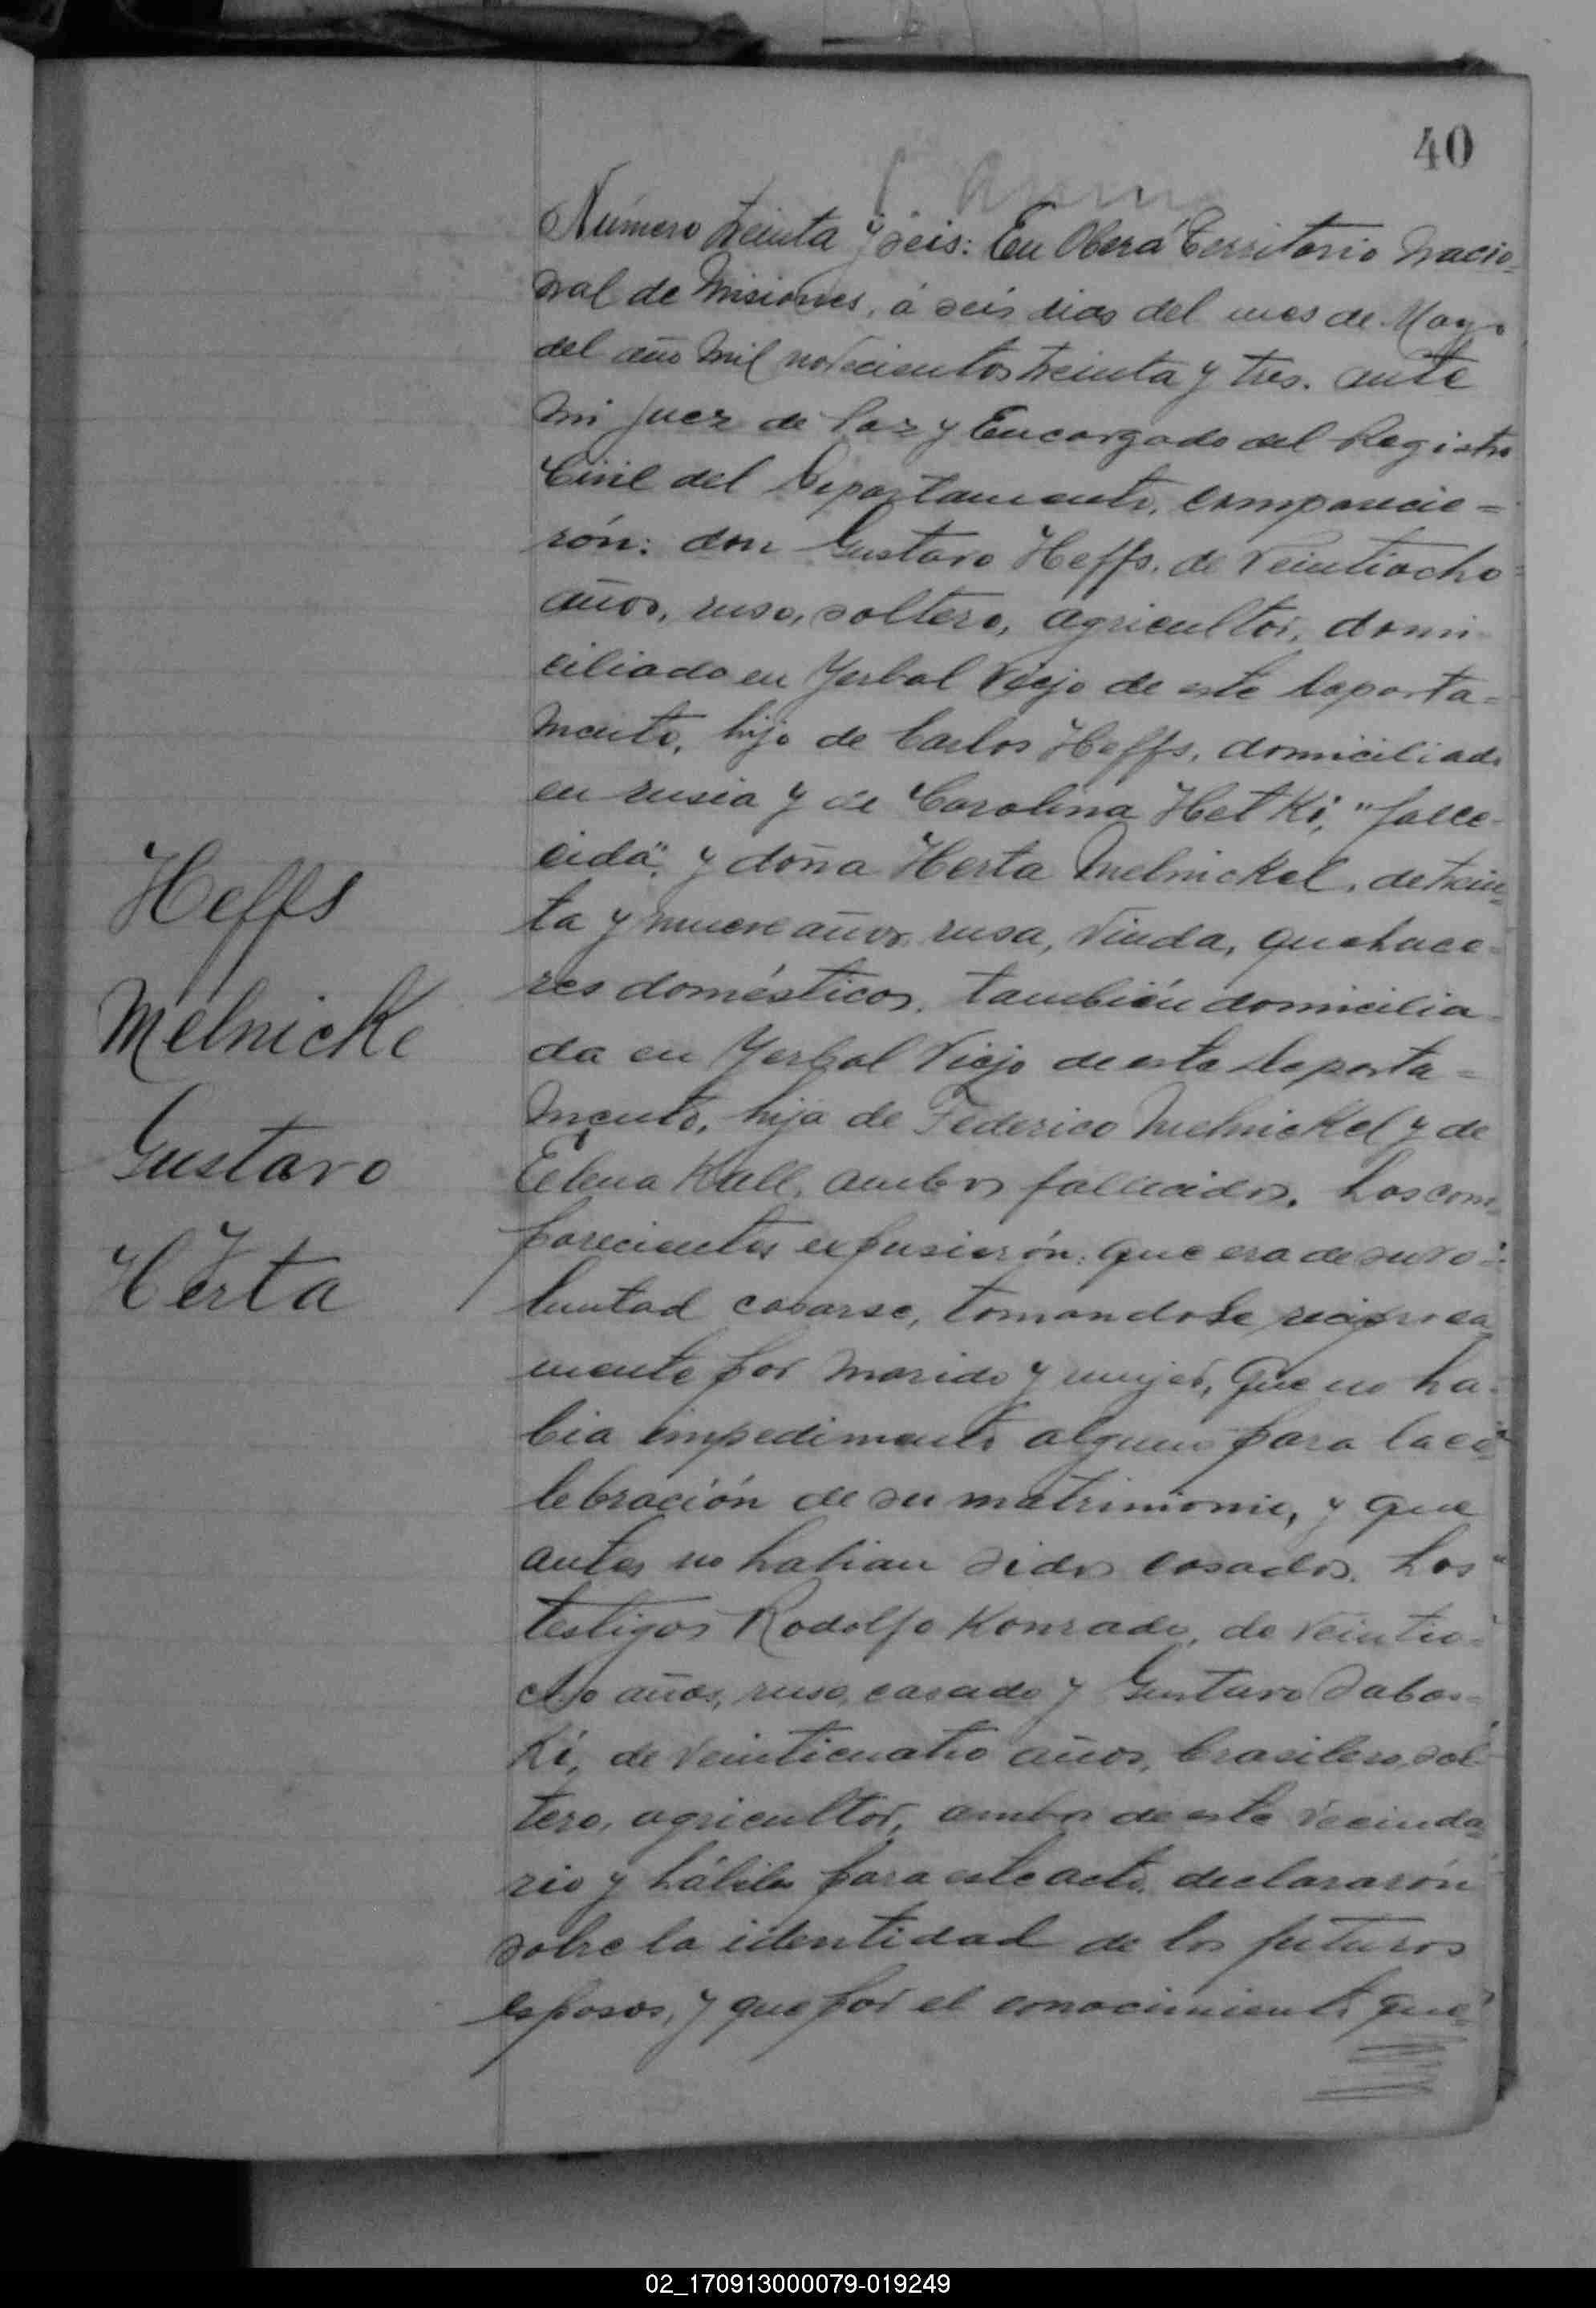 40
Número treinta y seis: En Oberá Territorio Nacio=
nal de Misiones, á seis dias del mes de Mayo
del año mil novecientos treinta y tres. ante
mi Juez de Paz y Encargado del Registro
Civil del Departamento, comparecie=
rón: don Gustavo Heffs, de veintiocho
años, ruso, soltero, agricultor, domi
ciliado en Yerbal Viejo de este Departa=
mento, hijo de Carlos Heffs, domiciliado
en rusia y de Carolina Hetki, "falle-
cida", y doña Herta Melnickel, de trein=
ta y nueve años rusa, viuda, quehace=
res domésticos, también domicilia
da en Yerbal Viejo de este Departa=
mento, hija de Federico Melnickel y de
Elena Kull, ambos fallecidos. Los com
parecientes expusierón: que era de su vo=
luntad casarse, tomandose reciproca
mente por marido y mujer, que no ha-
bia impedimento alguno para la ce=
lebración de su matrimonio, y que
antes no habian sidos casados. Los
testigos Rodolfo Konrado, de veintio=
cho años, ruso, casado y Gustavo Sabos=
ki, de veinticuatro años, brasilero, sol-
tero, agricultor, ambos de este vecinda
rio y hábiles para este acto, declararón
sobre la identidad de los futuros
esposos, y que por el conocimiento que=
Heffs
Melnicke
Gustavo
Herta
02_170913000079-019249